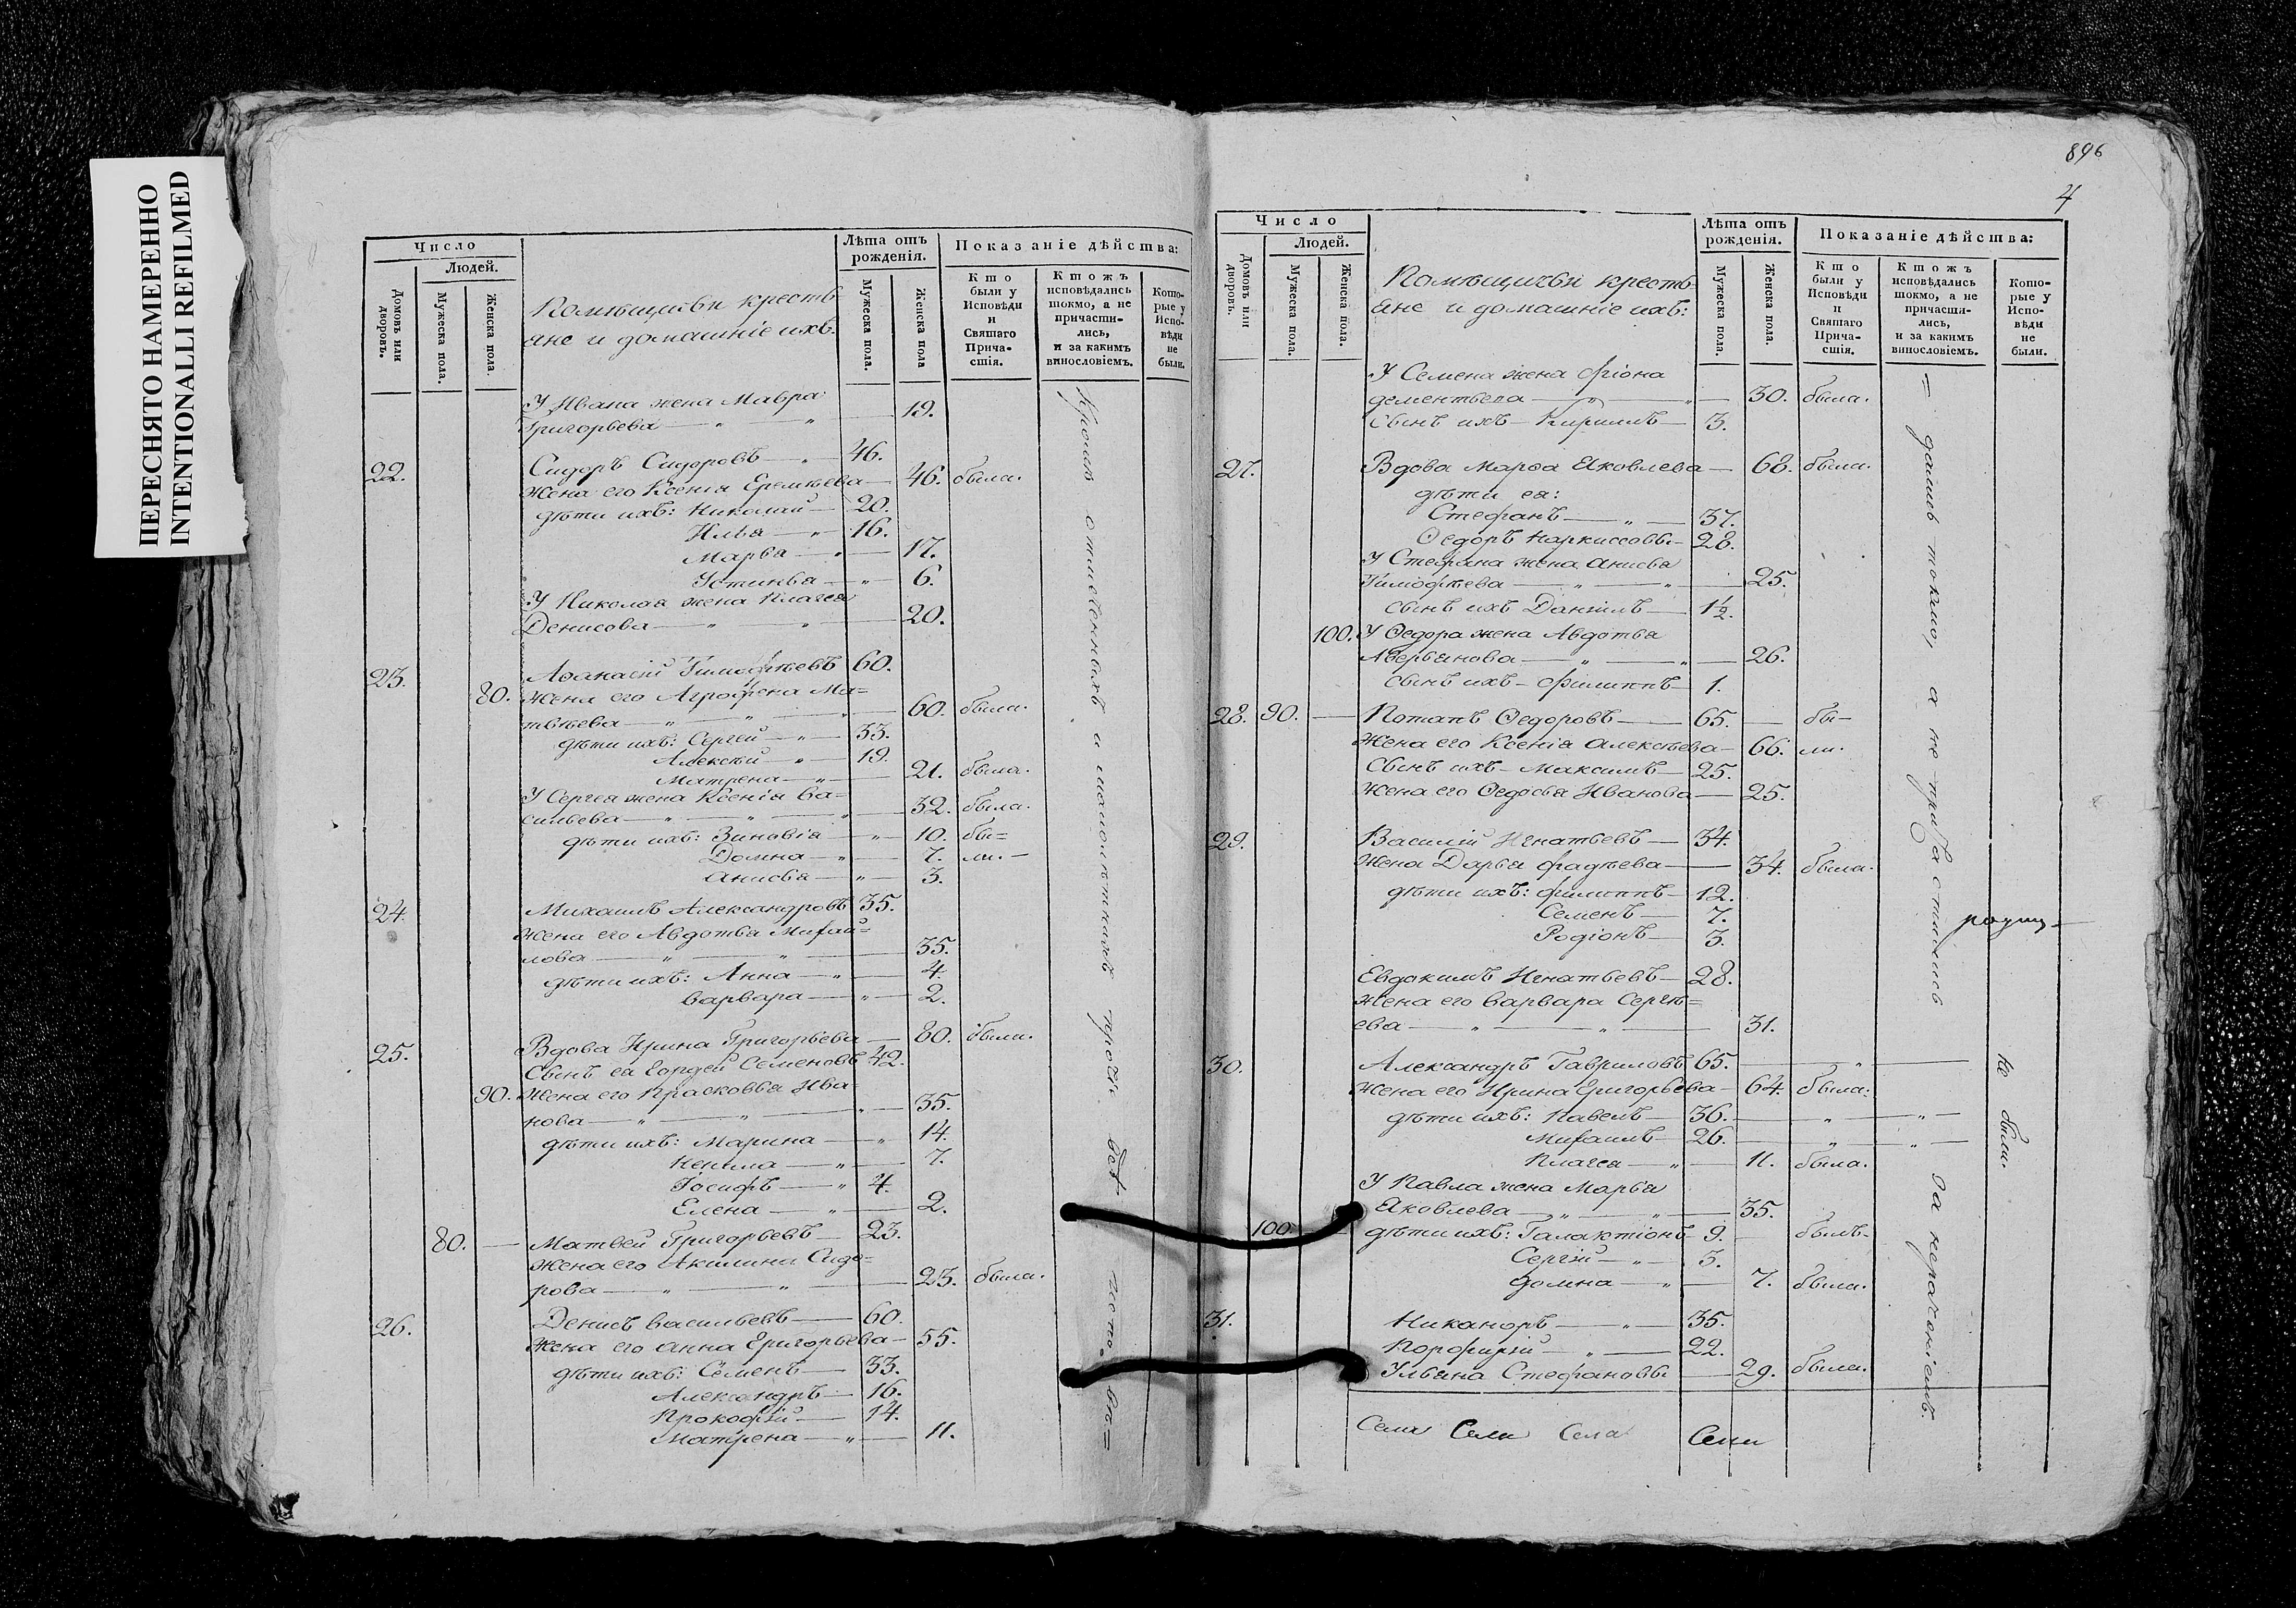 ПЕРЕСНЯТО НАМЕРЕННО
INTENTIONALLI REFILMED
Число
Людей.
Домовъ или дворовъ.
Мужеска пола.
Женска пола.
Помѣщичьи кресть-
яне и домашніе ихъ.
Лѣта отъ рожденія.
Мужеска пола.
Женска пола
Показаніе дѣйства:
Кто были у Исповѣди и Святаго Прича-стія.
Ктожъ исповѣдались токмо, а не причасти-лись, и за какимъ винословіемъ.
Кото-рые у Испо-вѣди не были.
У Ивана жена Мавра
Григорьева — „ — „ — 19.
22. Сидоръ Сидоровъ — „ — 46.
Жена его Ксенія Еремѣева — 46. была.
дѣти ихъ: Николай — 20.
Илья — „ — 16.
Марѳа — „ — 17.
Устинья — „ — 6.
У Николая жена Пласея
Денисова — „ — „ — 20.
23. Аѳанасій Тимофѣевъ 60.
80. Жена его Агрофена Ма=
твѣева — „ — „ — „ — 60. были.
дѣти ихъ: Сергей — „ — 33.
Алексѣй — „ — 19.
Матрена — „ — 21. была.
У Сергея жена Ксенія Ва=
сильева — „ — „ — „ — 32. была.
дѣти ихъ: Зиновія — „ — 10. бы=
Домна — „ — 7. ли. —
Анисья — „ — 3.
24. Михаилъ Александровъ 35.
Жена его Авдотья Михай=
лова — „ — „ — 35.
дѣти ихъ: Анна — „ — 4.
Варвара — „ — 2.
25. Вдова Ирина Григорьева — 80. были.
Сынъ ея Гордей Семеновъ 42.
90. Жена его Прасковья Ива-
нова — „ — „ — „ — 35.
дѣти ихъ: Марина — „ — 14.
— „ — 7.
Іосифъ — „ — 4.
Елена — „ — 2.
80. — Матвей Григорьевъ — 23.
Жена его Акилина Сидо=
рова — „ — „ — 23. была.
26. Денисъ Васильевъ — 60.
Жена его Анна Григорьева — 55.
дѣти ихъ: Семенъ — 33.
Александръ — 16.
Прокофій — 14.
Матрена — „ — 11.
Кромѣ отмеченныхъ и малолѣтнихъ протч. всѣ исповѣ=
896
4
Число
Людей.
Домовъ или дворовъ.
Мужеска пола.
Женска пола.
Помѣщичьи кресть-
яне и домашніе ихъ:
Лѣта отъ рожденія.
Мужеска пола.
Женска пола.
Показаніе дѣйства:
Кто были у Исповѣди и Святаго Прича-стія.
Ктожъ исповѣдались токмо, а не причасти-лись, и за какимъ винословіемъ.
Кото-рые у Испо-вѣди не были.
У Семена жена Фіона
Дементьева — „ — „ — 30. была.
Сынъ ихъ — Кирилъ — 3.
27. Вдова Марѳа Яковлева — 68. были.
дѣти ея:
Стефанъ — „ — 37.
Ѳедоръ Наркиссовы — 28.
У Стефана жена Анисья
Тимофѣева — „ — „ — 25.
Сынъ ихъ Даніилъ — 1½.
100. У Ѳедора жена Авдотья
Аверьянова — „ — „ — 26.
Сынъ ихъ — Филиппъ — 1.
28. 90. — Потапъ Ѳедоровъ — 65. — бы-
Жена его Ксенія Алексѣева — 66. ли.
Сынъ ихъ — Максимъ — 25.
Жена его Ѳедосья Иванова — 25.
29. Василій Игнатьевъ — 34.
Жена Дарья Фадѣева — 34. была.
дѣти ихъ: Филиппъ — 12.
Семенъ — 7.
Родіонъ — 3.
Евдокимъ Игнатьевъ — 28.
Жена его Варвара Сергѣ=
ева — „ — „ — 31.
30. Александръ Гавриловъ 65. — „ —
Жена его Ирина Григорьева — 64. была.
дѣти ихъ: Павелъ — 36. — „ — „ —
Михаилъ — 26. — „ — „ —
Пласея — „ — 11. была.
У Павла жена Марья
Яковлева — „ — „ — 35.
100. — дѣти ихъ: Галактіонъ — 9. — былъ.
Сергій — „ — 3.
Домна — „ — 7. была.
31. Никаноръ — „ — 35.
Порфирій — „ — 22.
Ульяна Стефановы — 29. была.
Села Села Села Сели
= дались токмо, а не пріобщастились за нераченіемъ.
не были.